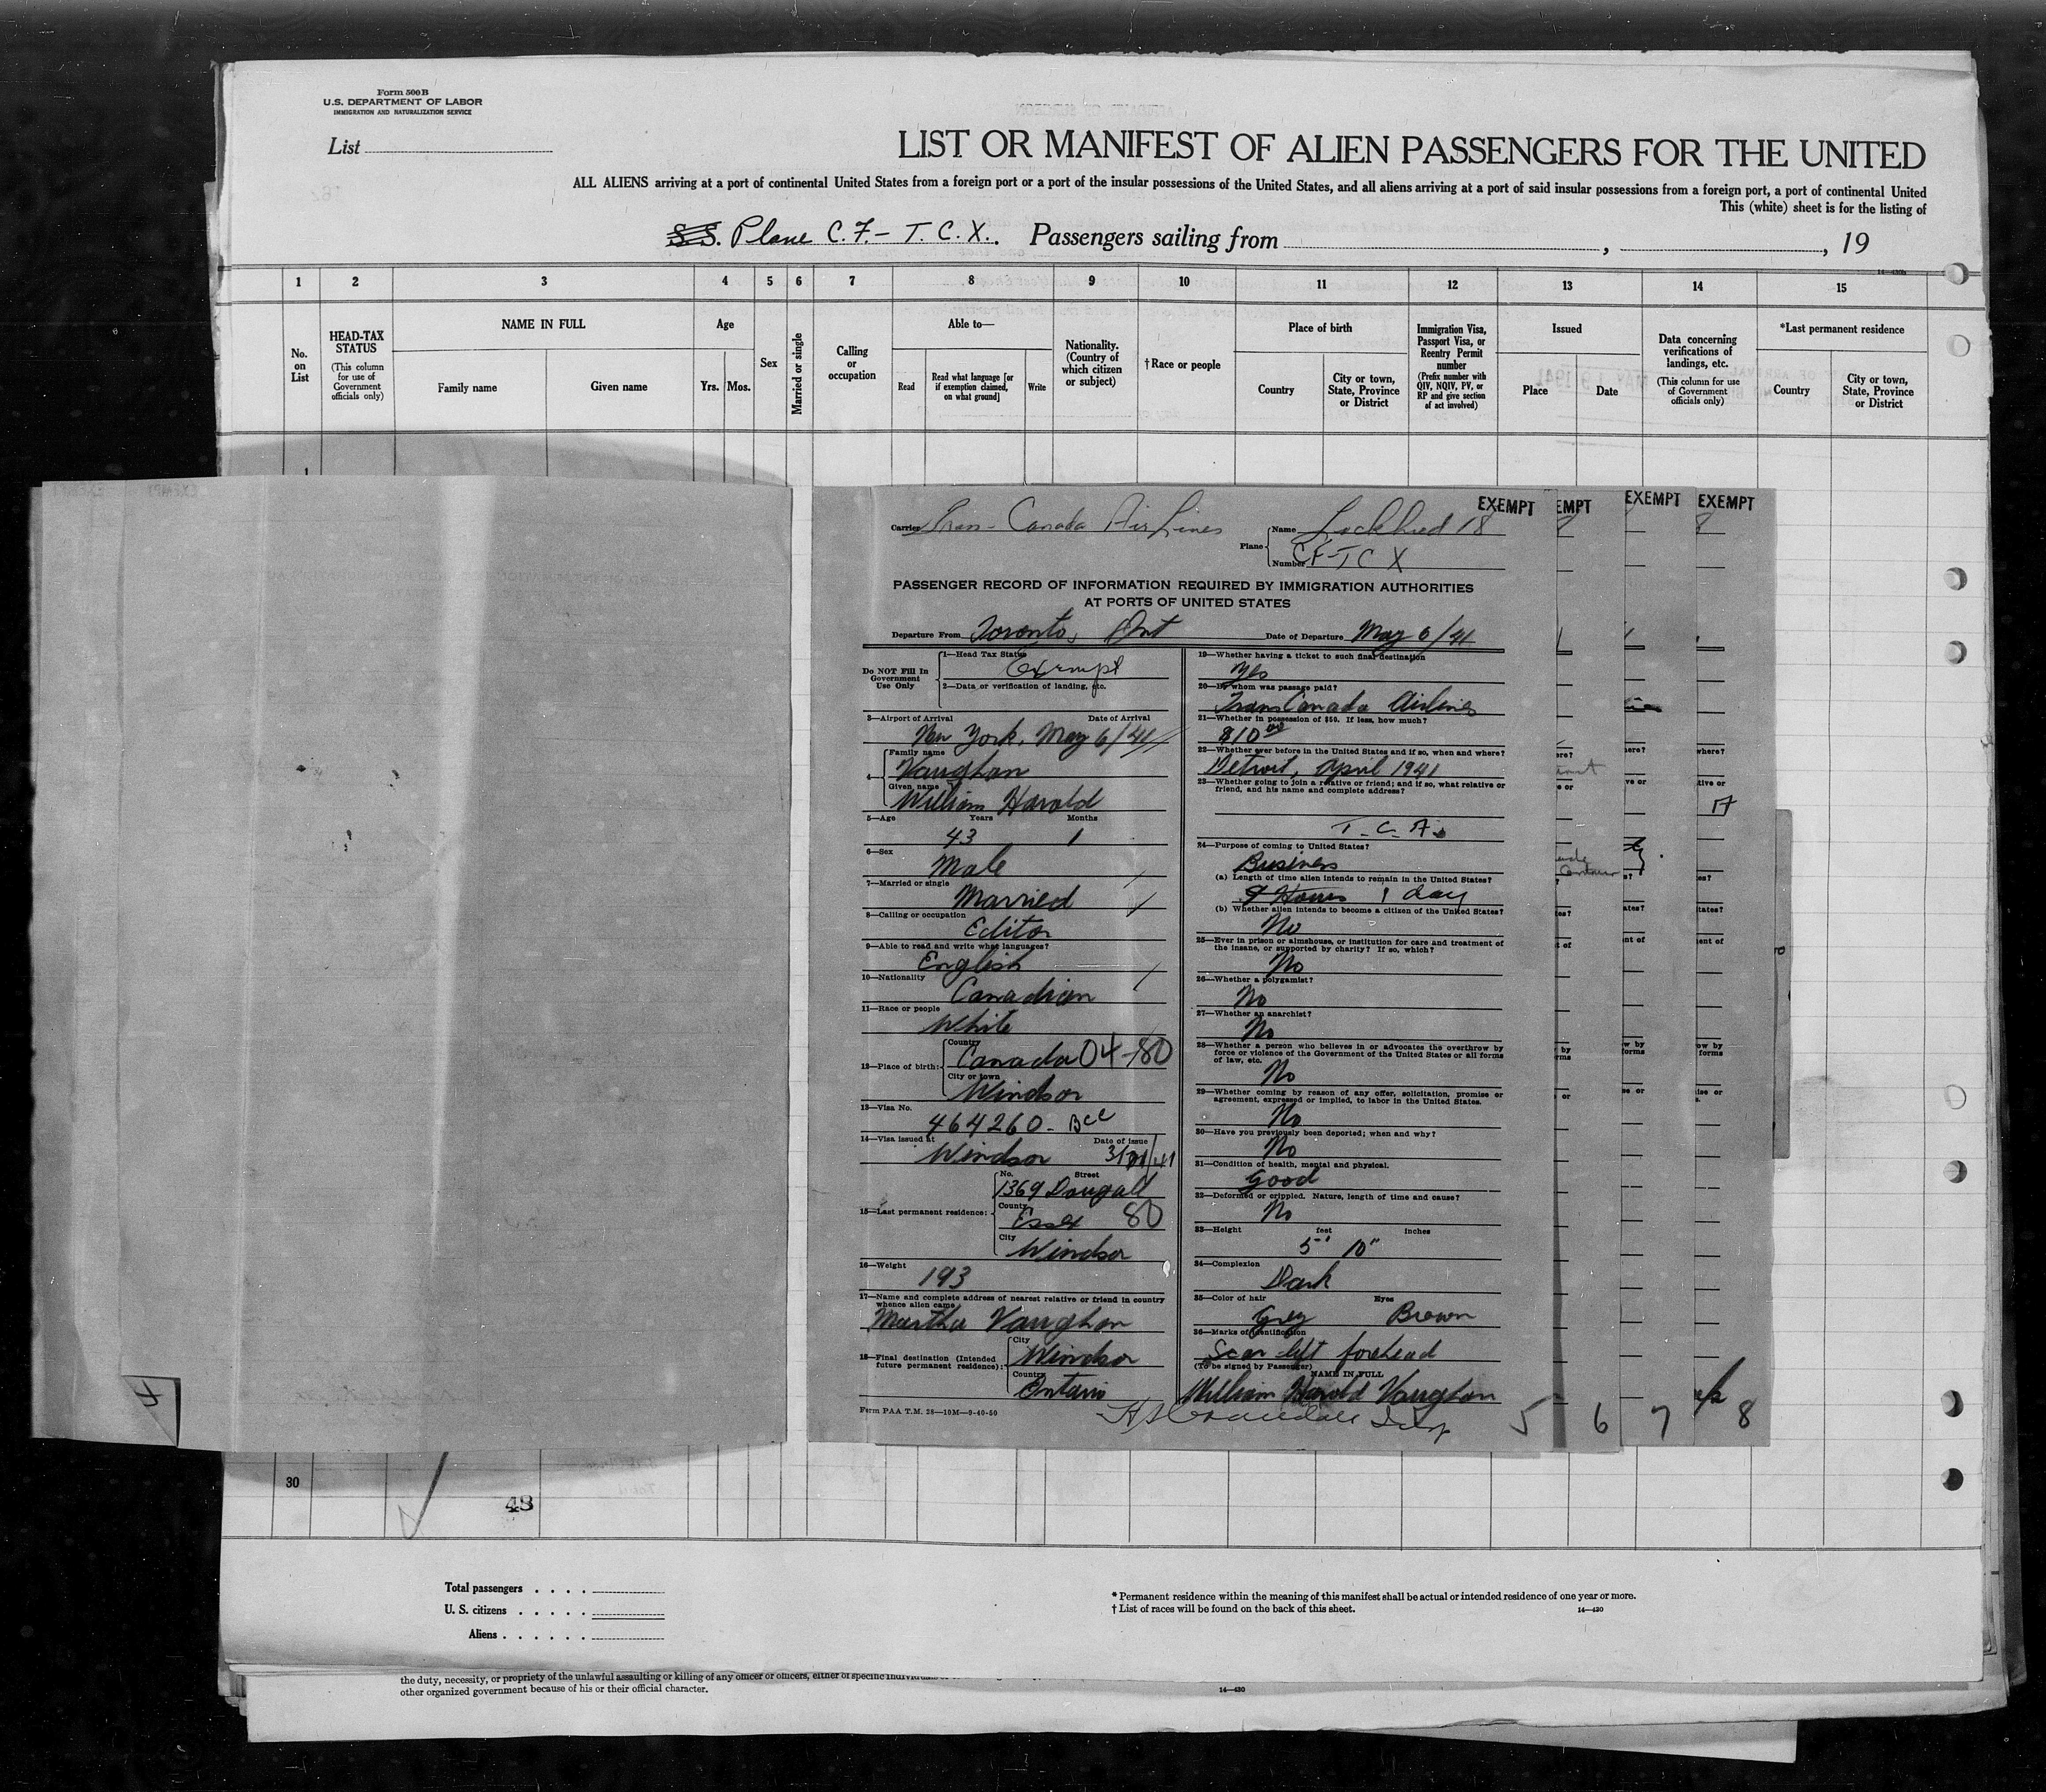 Form 500B
U.S. DEPARTMENT OF LABOR
IMMIGRATION AND NATURALIZATION SERVICE
List
LIST OR MANIFEST OF ALIEN PASSENGERS FOR THE UNITED
ALL ALIENS arriving at a port of continental United States from a foreign port or a port of the insular possessions of the United States, and all aliens arriving at a port of said insular possessions from a foreign port, a port of continental United
This (white) sheet is for the listing of
S.S. Plane C.F.- T.C.X. Passengers sailing from , , 19
14-430b
1 2 3 4 5 6 7 8 9 10 11 12 13 14 15
No. on List
HEAD-TAX STATUS
(This column for use of Government officials only)
NAME IN FULL
Family name Given name
Age
Yrs. Mos.
Sex
Married or single
Calling or occupation
Able to—
Read
Read what language [or if exemption claimed, on what ground]
Write
Nationality. (Country of which citizen or subject)
† Race or people
Place of birth
Country
City or town, State, Province or District
Immigration Visa, Passport Visa, or Reentry Permit number
(Prefix number with QIV, NQIV, PV, or RP and give section of act involved)
Issued
Place Date
Data concerning verifications of landings, etc.
(This column for use of Government officials only)
*Last permanent residence
Country
City or town, State, Province or District
EXEMPT EMPT EXEMPT EXEMPT
Carrier Trans-Canada Air Lines
Plane
Name Lockheed 18
Number CF-TCX
PASSENGER RECORD OF INFORMATION REQUIRED BY IMMIGRATION AUTHORITIES
AT PORTS OF UNITED STATES
Departure From Toronto, Ont Date of Departure May 6/41
Do NOT Fill In Government Use Only
1—Head Tax Status
Exempt
2—Data or verification of landing, etc.
3—Airport of Arrival Date of Arrival
New York, May 6/41
4—
Family name
Vaughan
Given name
William Harold
5—Age Years Months
43 1
6—Sex
Male
7—Married or single
Married
8—Calling or occupation
Editor
9—Able to read and write what languages?
English
10—Nationality
Canadian
11—Race or people
White
12—Place of birth:
Country
Canada 04-80
City or town
Windsor
13—Visa No.
464260- BCC
14—Visa issued at Date of issue
Windsor
15—Last permanent residence:
No. Street
1369 Dougall
County
Essex 80
City
Windsor
16—Weight
193
17—Name and complete address of nearest relative or friend in country whence alien came
Martha Vaughan
18—Final destination (Intended future permanent residence):
City
Windsor
Country
Ontario
Form PAA T.M. 28—10M—9-40-50
19—Whether having a ticket to such final destination
Yes
20—By whom was passage paid?
Trans Canada Airlines
21—Whether in possession of $50. If less, how much?
$10.00
22—Whether ever before in the United States and if so, when and where?
Detroit, April 1941
23—Whether going to join a relative or friend; and if so, what relative or friend, and his name and complete address?
T.C.A.
24—Purpose of coming to United States?
Business
(a) Length of time alien intends to remain in the United States?
9 Hours 1 day
(b) Whether alien intends to become a citizen of the United States?
No
25—Ever in prison or almshouse, or institution for care and treatment of the insane, or supported by charity? If so, which?
No
26—Whether a polygamist?
No
27—Whether an anarchist?
No
28—Whether a person who believes in or advocates the overthrow by force or violence of the Government of the United States or all forms of law, etc.
No
29—Whether coming by reason of any offer, solicitation, promise or agreement, expressed or implied, to labor in the United States.
No
30—Have you previously been deported; when and why?
No
31—Condition of health, mental and physical.
Good
32—Deformed or crippled. Nature, length of time and cause?
No
33—Height feet inches
5' 10"
34—Complexion
Dark
35—Color of hair Eyes
Grey Brown
36—Marks of identification
Scar left forehead
(To be signed by Passenger)
NAME IN FULL
William Harold Vaughan
5 6 7 8
4
30
48
Total passengers
U. S. citizens
Aliens
* Permanent residence within the meaning of this manifest shall be actual or intended residence of one year or more.
† List of races will be found on the back of this sheet. 14—430
the duty, necessity, or propriety of the unlawful assaulting or killing of any officer or officers, either of specific
other organized government because of his or their official character.
14—430